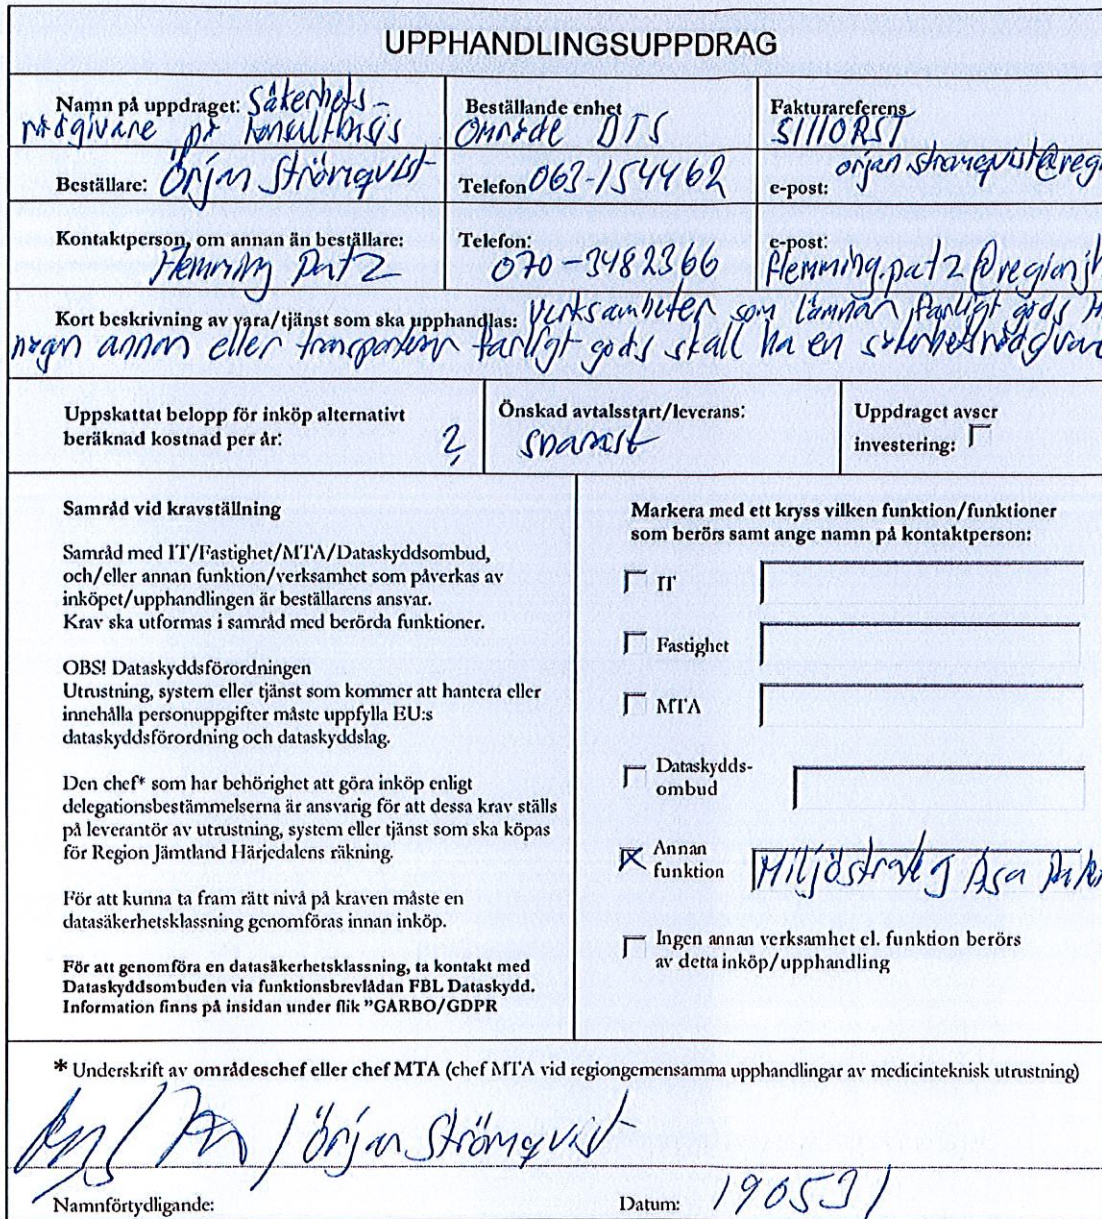 UPPHANDLINGSUPPDRAG
Namn på uppdraget: Säkerhets-
rådgivare på konsultbasis
Beställande enhet
Område DTS
Fakturareferens
Beställare: Örjan Strömqvist
Telefon 063-154462
e-post: orjan.stromqvist@reg
Kontaktperson, om annan än beställare:
Flemming Patz
Telefon:
070-3482366
e-post:
flemming.patz@regionjh
Kort beskrivning av vara/tjänst som ska upphandlas: Verksamheter som lämnar farligt gods
någon annan eller transporterar farligt gods skall ha en säkerhetsrådgivare
Uppskattat belopp för inköp alternativt
beräknad kostnad per år: ?
Önskad avtalsstart/leverans:
snarast
Uppdraget avser
investering:
Samråd vid kravställning
Samråd med IT/Fastighet/MTA/Dataskyddsombud,
och/eller annan funktion/verksamhet som påverkas av
inköpet/upphandlingen är beställarens ansvar.
Krav ska utformas i samråd med berörda funktioner.
OBS! Dataskyddsförordningen
Utrustning, system eller tjänst som kommer att hantera eller
innehålla personuppgifter måste uppfylla EU:s
dataskyddsförordning och dataskyddslag.
Den chef* som har behörighet att göra inköp enligt
delegationsbestämmelserna är ansvarig för att dessa krav ställs
på leverantör av utrustning, system eller tjänst som ska köpas
för Region Jämtland Härjedalens räkning.
För att kunna ta fram rätt nivå på kraven måste en
datasäkerhetsklassning genomföras innan inköp.
För att genomföra en datasäkerhetsklassning, ta kontakt med
Dataskyddsombuden via funktionsbrevlådan FBL Dataskydd.
Information finns på insidan under flik "GARBO/GDPR
Markera med ett kryss vilken funktion/funktioner
som berörs samt ange namn på kontaktperson:
IT
Fastighet
MTA
Dataskydds-
ombud
Annan
funktion
Miljöstrateg Åsa
Ingen annan verksamhet el. funktion berörs
av detta inköp/upphandling
* Underskrift av områdeschef eller chef MTA (chef MTA vid regiongemensamma upphandlingar av medicinteknisk utrustning)
/ Örjan Strömqvist
Namnförtydligande:
Datum: 190531